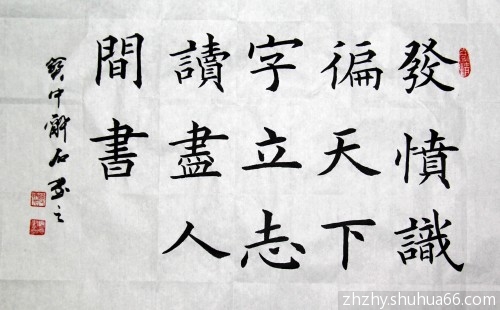 發憤識
徧天下
字立志
讀盡人
間書
zhzhy.shuhua66.com